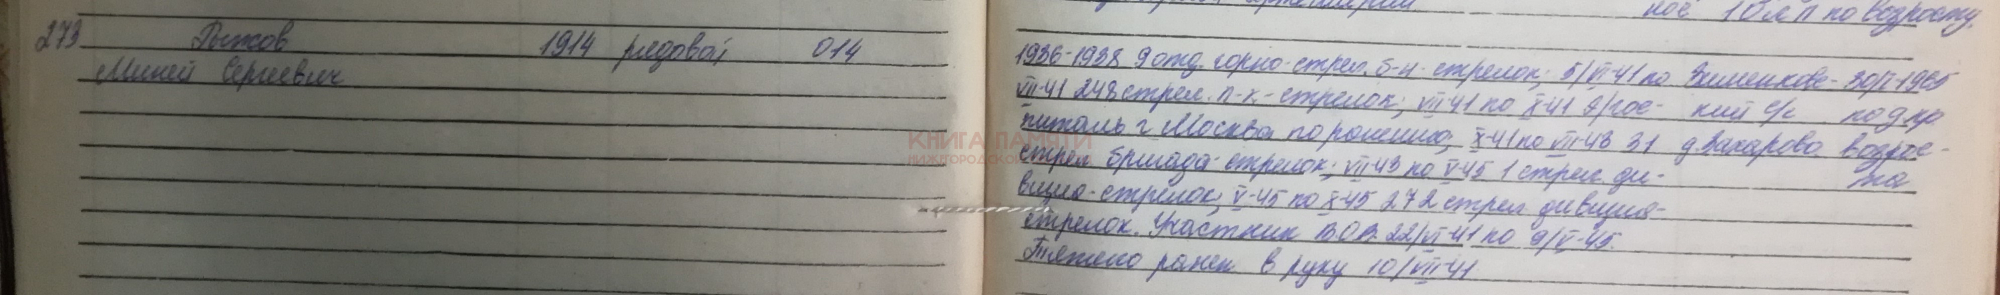 ное 10 л п по возрасту.
273 Рыжов 1914 рядовой 014
Миней Сергеевич
1936-1938 9 отд. горно-стрел. б-н - стрелок; 5/VI-41 по Зименковс- 30/I-1965
VII-41 248 стрел. п-к - стрелок; VII-41 по X-41 э/гос- кий с/с под гр
питаль г Москва по ранению; X-41 по VII-43 31 д. Захарово возрас-
стрел. бригада - стрелок; VII-43 по V-45 1 стрел. ди- та
визия - стрелок; V-45 по X-45 272 стрел. дивизия-
стрелок. Участник ВОВ. 22/VI-41 по 9/V-45.
Тяжело ранен в руку 10/VII-41
КНИГА ПАМЯТИ